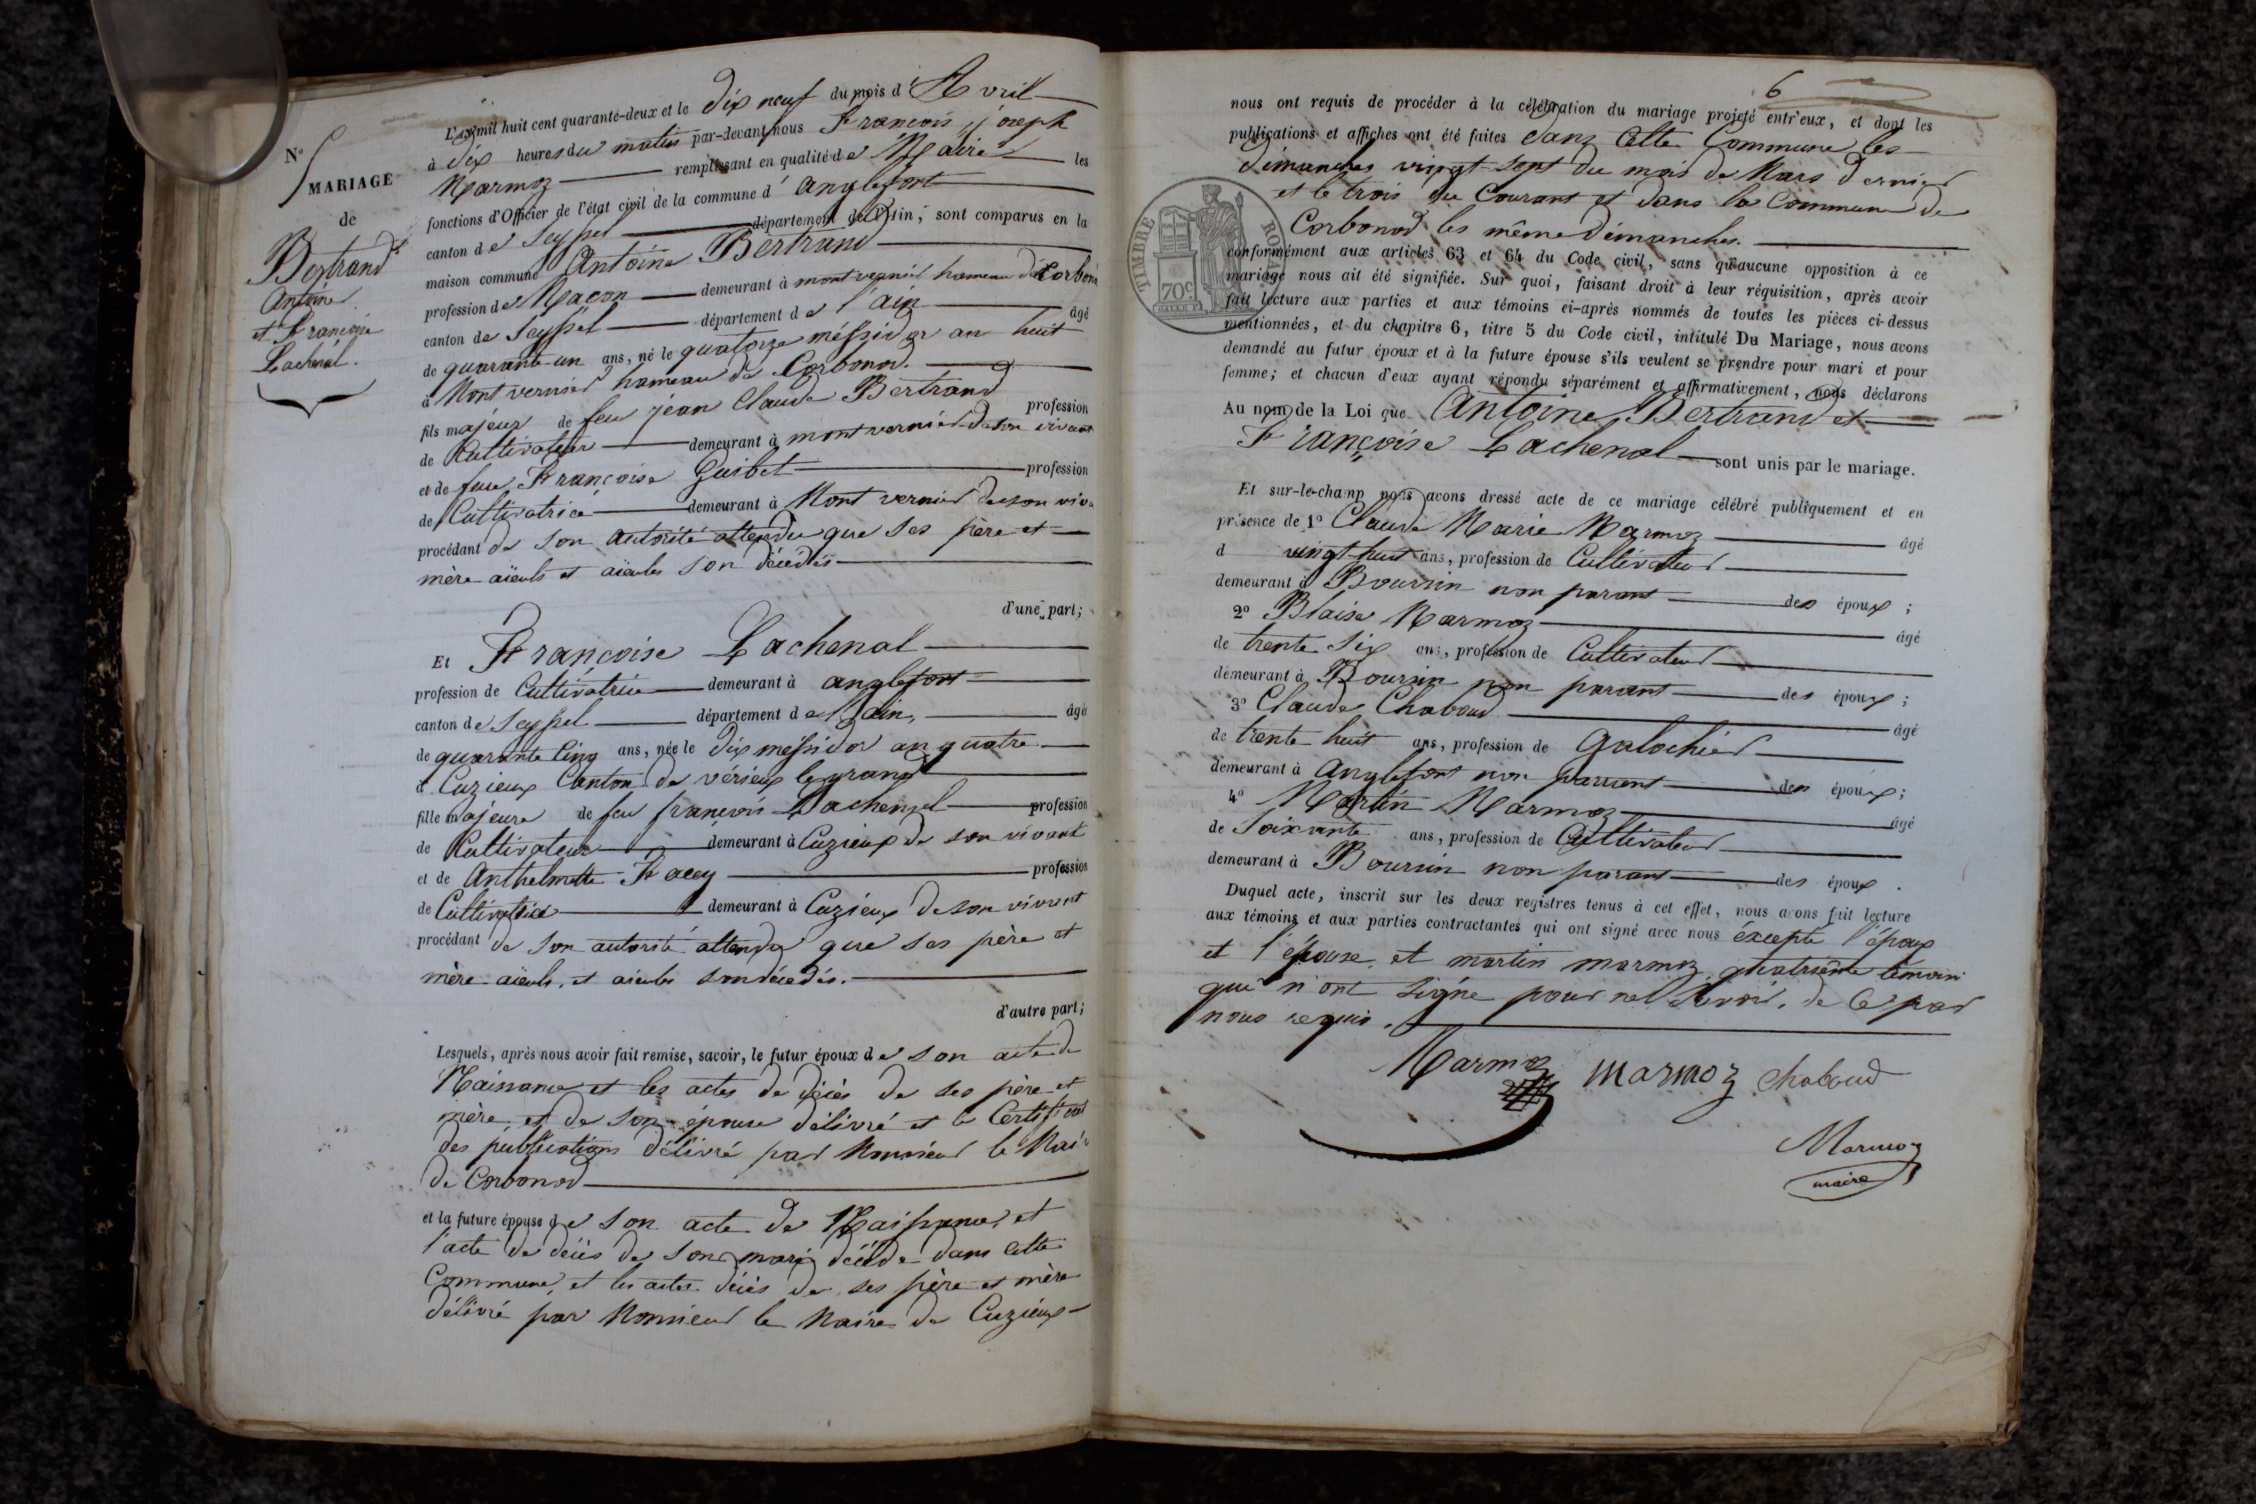 N° 5
MARIAGE
de
Bertrand
Antoine
et Françoise
Lachenal.
L'an mil huit cent quarante-deux et le dix neuf du mois d'Avril
à dix heures du matin par-devant nous François joseph
Marmoz remplissant en qualité de Maire les
fonctions d'Officier de l'état civil de la commune d'anglefort
canton de Seyssel département de l'Ain, sont comparus en la
maison commune Antoine Bertrand
profession de Maçon demeurant à montvernier hameau de Corbonod
canton de Seyssel département de l'ain âgé
de quarante un ans, né le quatorze méssidor an huit
à Mont vernier hameau de Corbonod.
fils majeur de feu jean Claude Bertrand profession
de Cultivateur demeurant à montvernier de son vivant
et de feue Françoise Guibet profession
de Cultivatrice demeurant à Mont vernier de son viva
procédant de son autorité attendu que ses père et
mère aïeuls et aïeules son décédés
d'une part;
Et Françoise Lachenal
profession de Cultivatrice demeurant à anglefort
canton de Seyssel département de l'ain, âgé
de quarante cinq ans, née le dix messidor an quatre
à Cuzieux Canton de vérieux le grand
fille majeure de feu françois Lachenal profession
de Cultivateur demeurant à Cuzieux de son vivant
et de Anthelmette Facey profession
de Cultivatrice demeurant à Cuzieux de son vivant
procédant de son autorité attendu que ses père et
mère aïeuls, et aïeules son décédés.
d'autre part;
Lesquels, après nous avoir fait remise, savoir, le futur époux de son acte de
Naissance et les actes de décès de ses père et
mère, et de son épouse délivré et le Certificat
des publications délivré par Monsieur le Mair
de Corbonod
et la future épouse de son acte de Naissance et
l'acte de décès de son mari décédé dans cette
Commune, et les actes décès de ses père et mère
délivré par Monsieur le Maire de Cuzieux
6
nous ont requis de procéder à la célébration du mariage projeté entr'eux, et dont les
publications et affiches ont été faites dans cette Commune les
dimanches vingt-sept du mois de Mars dernier
et le trois du Courant et dans la Commune de
Corbonod les même dimanches.
TIMBRE ROYAL
70c
conformément aux articles 63 et 64 du Code civil, sans qu'aucune opposition à ce
mariage nous ait été signifiée. Sur quoi, faisant droit à leur réquisition, après avoir
fait lecture aux parties et aux témoins ci-après nommés de toutes les pièces ci-dessus
mentionnées, et du chapitre 6, titre 5 du Code civil, intitulé Du Mariage, nous avons
demandé au futur époux et à la future épouse s'ils veulent se prendre pour mari et pour
femme; et chacun d'eux ayant répondu séparément et affirmativement, nous déclarons
Au nom de la Loi que Antoine Bertrand et
Françoise Lachenal sont unis par le mariage.
Et sur-le-champ nous avons dressé acte de ce mariage célébré publiquement et en
présence de 1° Claude Marie Marmoz âgé
d vingt huit ans, profession de Cultivateur
demeurant à Boursin non parant des époux ;
2° Blaise Marmoz âgé
de trente six ans, profession de Cultivateur
demeurant à Boursin non parant des époux ;
3° Claude Chaboud âgé
de trente huit ans, profession de Galochier
demeurant à Anglefort non parrant des époux ;
4° Martin Marmoz âgé
de Soixante ans, profession de Cultivateur
demeurant à Boursin non parant des époux .
Duquel acte, inscrit sur les deux registres tenus à cet effet, nous avons fait lecture
aux témoins et aux parties contractantes qui ont signé avec nous éxcepté l'époux
et l'épouse, et martin marmoz quatrième témoin
qui n'ont signé pour ne savoir, de ce par
nous requis.
Marmoz marmoz Chaboud
Marmoz
maire